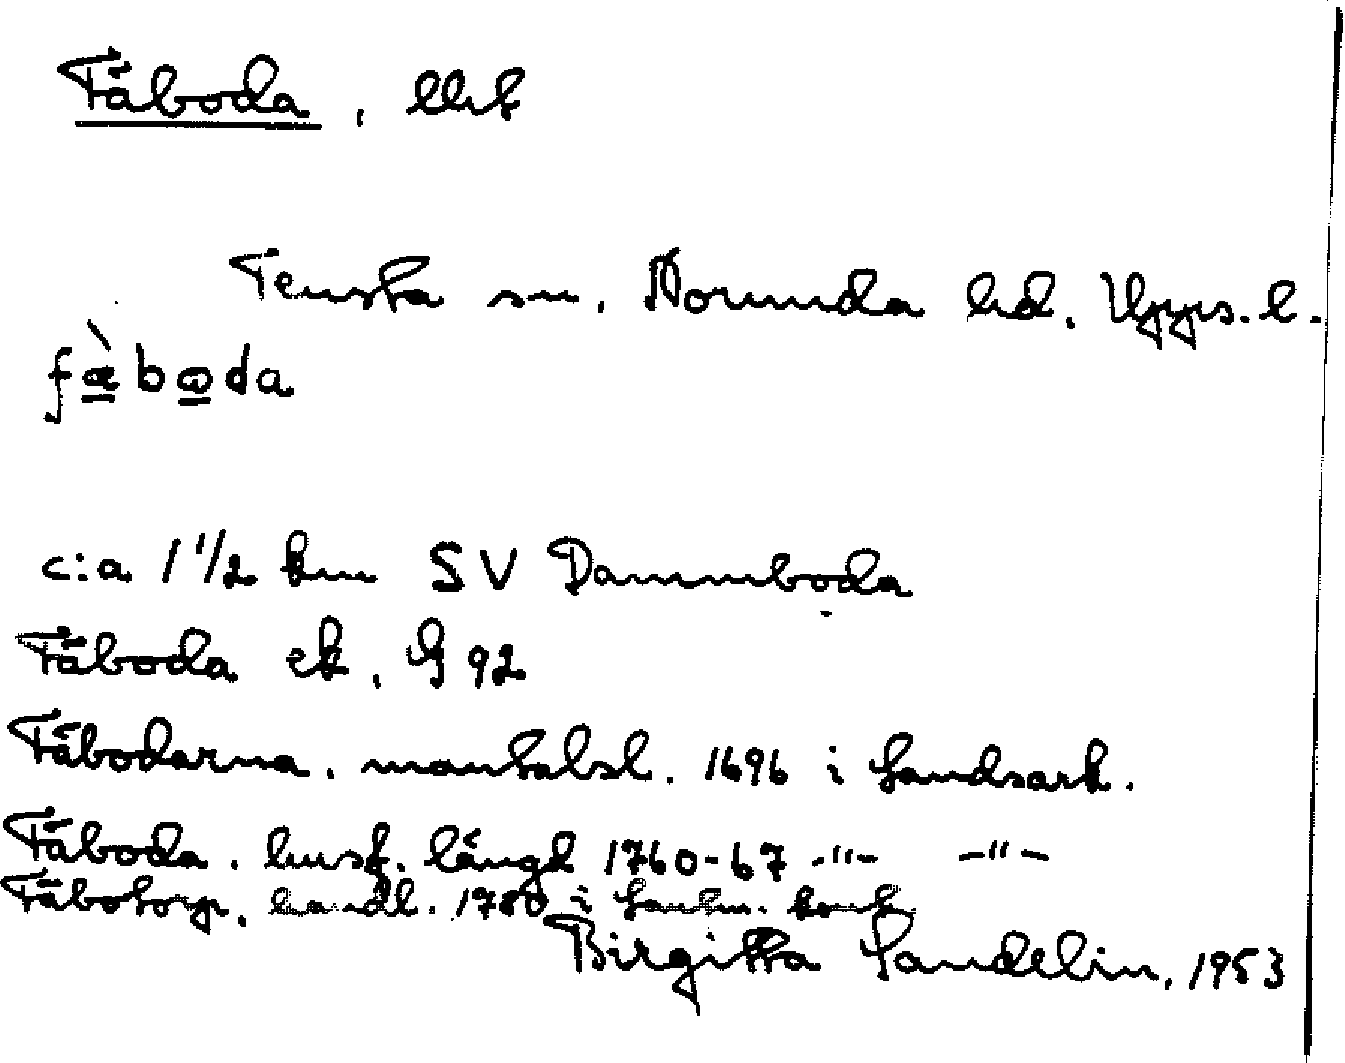 Fäboda, lht
Tensta sn. Norunda hd. Upps. l.
fæ̀boda
c:a 1 1/2 km SV Dammboda
Fäboda ek. 92
Fäbodarna. mantalsl. 1696 i Landsark.
Fäboda. husf. längd 1760-67 -"- -"-
Fäbotorp. handl. 1780 i Lantm. kont.
Birgitta Sandelin, 1953